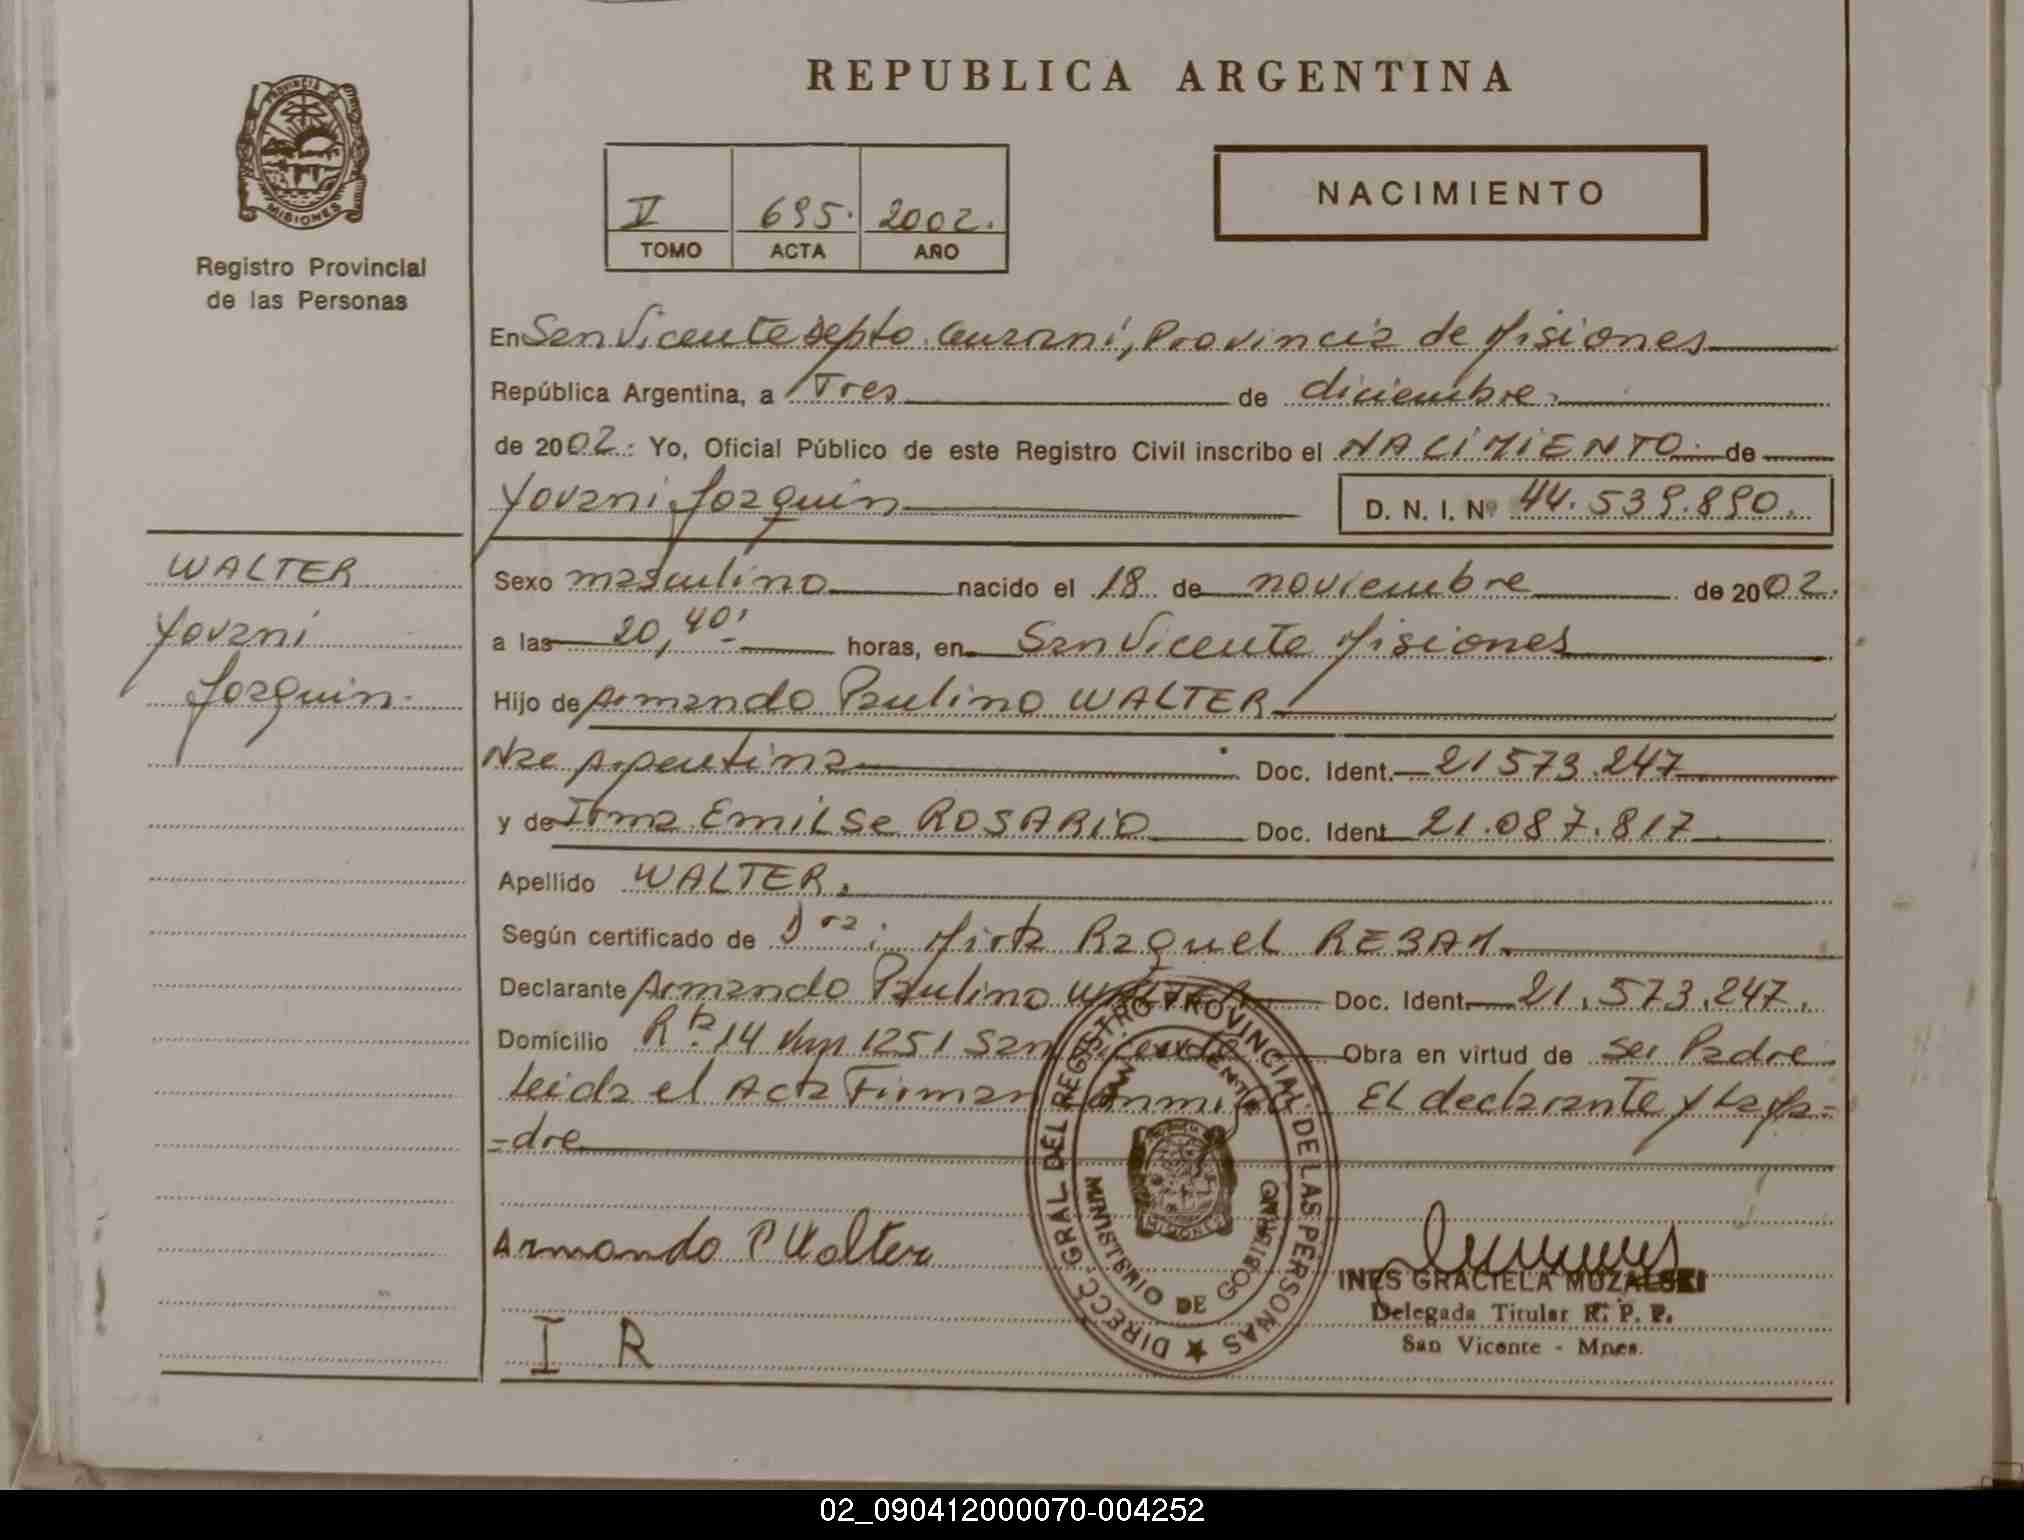 REPUBLICA ARGENTINA
PROVINCIA DE
MISIONES
Registro Provincial
de las Personas
V 695. 2002.
TOMO ACTA AÑO
NACIMIENTO
En San Vicente Depto. Guaraní, Provincia de Misiones
República Argentina, a Tres de diciembre
de 2002. Yo, Oficial Público de este Registro Civil inscribo el NACIMIENTO de
Yovani Joaquin D. N. I. Nº 44.539.890.
WALTER
Yovani
Joaquin
Sexo masculino nacido el 18 de noviembre de 2002.
a las 20,40' horas, en San Vicente Misiones
Hijo de Armando Paulino WALTER
Nac Argentina Doc. Ident. 21573.247
y de Irma Emilse ROSARIO Doc. Ident. 21.087.817
Apellido WALTER.
Según certificado de Dra: Mirta Raquel REBAY.
Declarante Armando Paulino WALTER Doc. Ident. 21.573.247.
Domicilio Rta. 14 km 1251 San Vicente Obra en virtud de ser Padre
Leida el Acta Firman conmigo El declarante y La Ma=
=dre
Armando P Walter
I R
DIRECC. GRAL DEL REGISTRO PROVINCIAL DE LAS PERSONAS
SAN VICENTE
MINISTERIO DE GOBIERNO
MISIONES
INES GRACIELA MUZALSKI
Delegada Titular R. P. P.
San Vicente - Mnes.
02_090412000070-004252